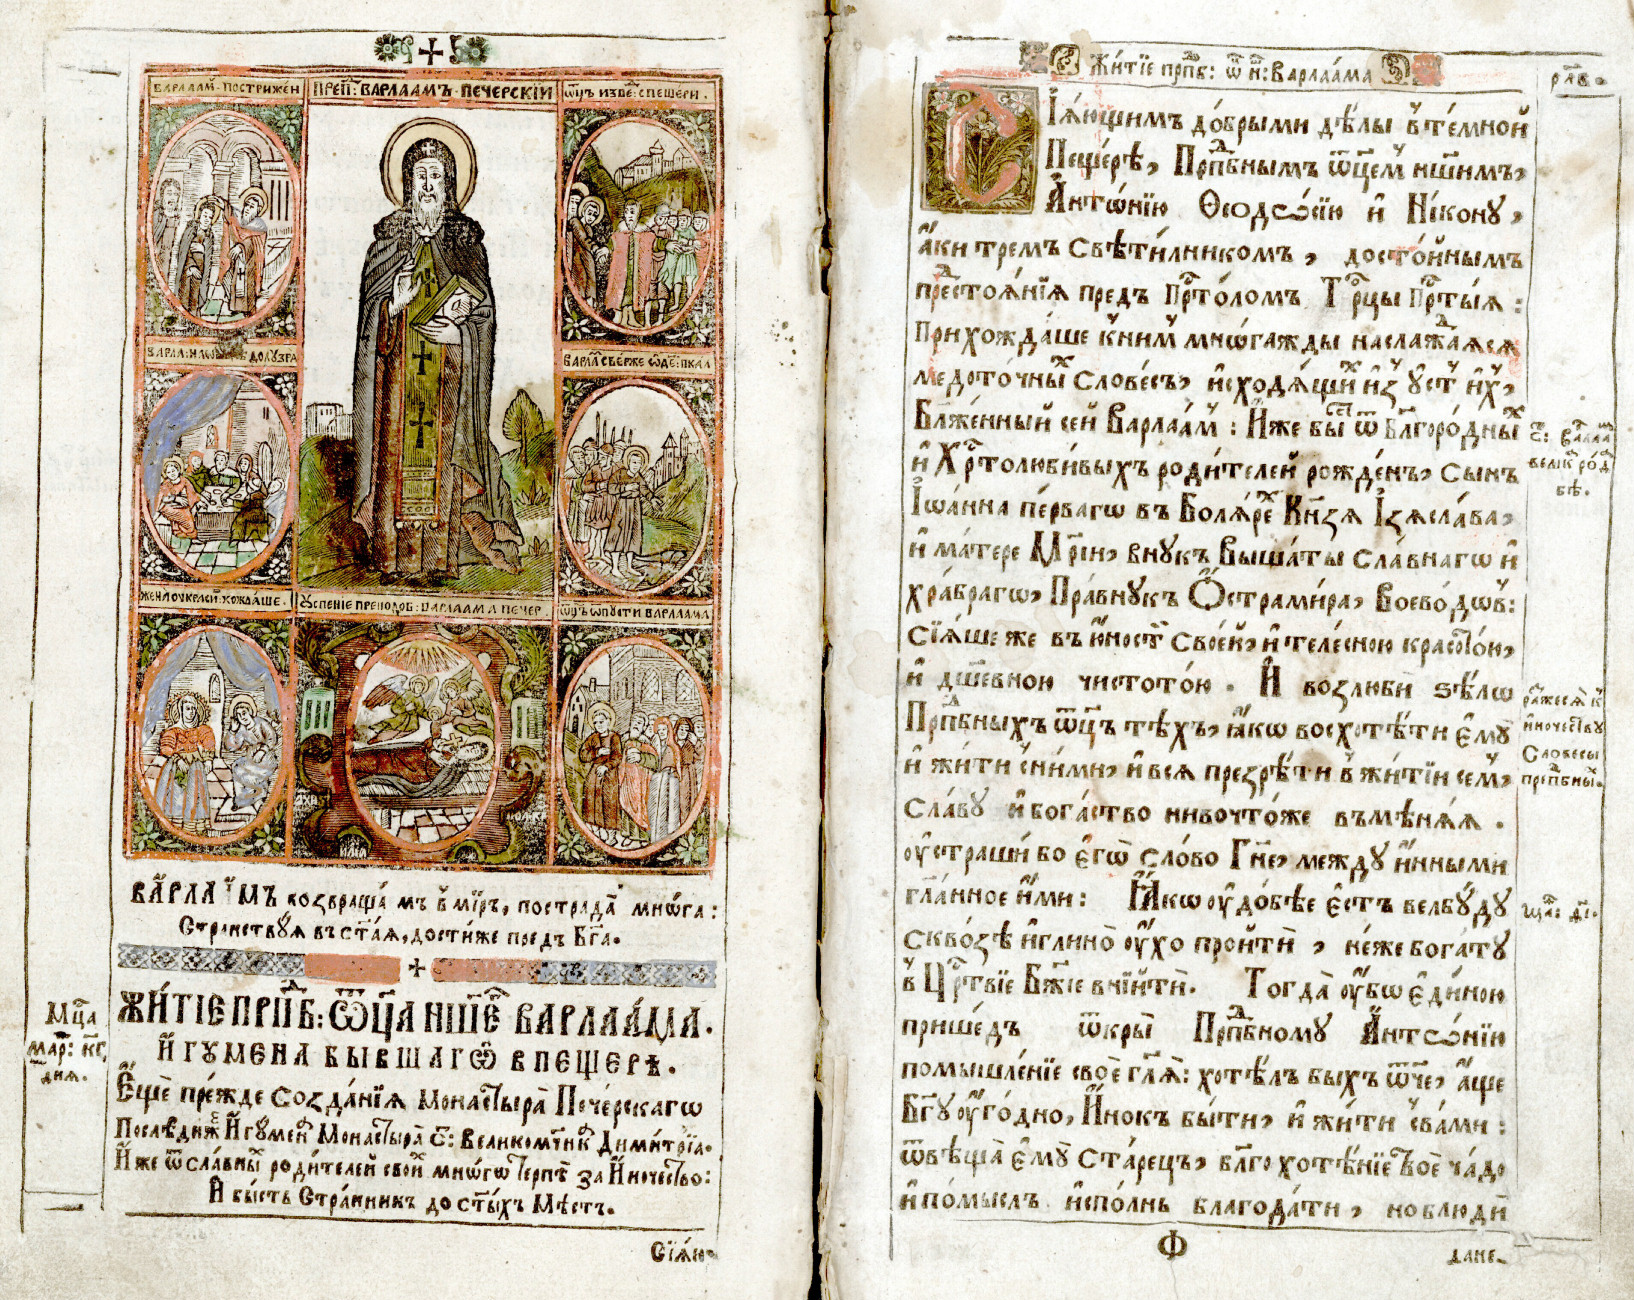 ВАРЛААМ· ПОСТРИЖЕН
ПРЕП҃: ВАРЛААМЪ· ПЕЧЕРСКІИ
ѾЦЪ ИЗВЕ: СПЕЩЕРИ.
ВАРЛА:
ВАРЛА СВЕРЖЕ ОДЕ:
ЖЕНА ОУКРАСИ: ХОЖДАШЕ.
ꙊСПЕНІЕ ПРЕПОДОБ: ВАРЛААМА ПЕЧЕР.
ѾЦЪ ѾПУСТИ ВАРЛААМА
ИЛІѦ
ВА́РЛАꙆМЪ возвраща́емъ в̾мі́ръ, пострада̀ мнѡ́га:
Стра́нствуѧ въ ст҃аѧ, дости́же предъ Бг҃а.
Мц҃а
мар: кг҃
днѧ.
ЖИ́ТІЕ ПРПⷣБ: Ѿц҃А НШ҃Е ВАРЛАА́МА.
И҆ГУМЕНА БЫВШАГѠ В ПЕЩЕРѢ.
Е҆щѐ пре́жде Созда́нїѧ Монастырѧ̀ Пече́рскагѡ
Послѣди́же И҆гу́мен Монастырѧ̀ С: Великомч҃ник Дими́трїа.
И҆́же ѿ сла́вны роди́телей свои́ мнѡ́гѡ терпѣ̀ за И҆́ночество:
И҆ бы́сть Стра́нникъ до ст҃ы́хъ Мѣ́стъ.
Сїѧ́ю-
Жи́тїе прпⷣб: ѿ н: Варлаа́ма
рл҃в.
Сїѧ́ющимъ до́брыми дѣ́лы в̾ те́мной
Пеще́рѣ, Прпⷣбнымъ ѿц҃ем н҃шимъ,
А҆нтѡ́нїю Ѳеодѡ́сїю и҆ Ні́кону,
а҆́ки тремъ свѣти́лникомъ, досто́йнымъ
престоѧ́нїѧ предъ Прⷭ҇то́ломъ Трⷪ҇цы Прⷭ҇ты́ѧ:
Прихожда́ше к̾ ни́м мнѡ́гажды наслажда́ѧсѧ
медоточны́ слове́съ, и҆сходѧ́щи и҆з̾ ᲂу҆́ст и҆́х,
Бл҃же́нный сей Варлаа́м: И҆́же бы ѿ Бл҃горо́дны
и҆ Хрⷭ҇толюби́выхъ роди́телей рожде́нъ, сынъ
І҆ѡа́нна пе́рвагѡ въ Болѧ́ре Кн҃зѧ І҆зѧсла́ва,
и҆ ма́тере Мр҃іи, внукъ Выша́ты сла́внагѡ и҆
хра́брагѡ, Пра́внукъ Ѻ҆страми́ра, Воево́дѡв:
Сїѧ́ше же въ ю҆́ност свое́й, и҆ теле́сною красото́ю,
и҆ дш҃е́вною чистото́ю. И҆ возлюбѝ ѕѣ́лѡ
Прпⷣбныхъ ѿц҃ъ тѣ́хъ, ꙗ҆́кѡ восхотѣ́ти є҆му̀
и҆ жи́ти с̾ ни́ми, и҆ всѧ презрѣ́ти в̾ житїи се́м,
Сла́ву и҆ бога́ство нивочто́же въмѣнѧ́ѧ.
ᲂу҆страши́ бо є҆гѡ̀ сло́во Гн҃е, между и҆́нными
гл҃анное и҆́ми: Ꙗ҆́кѡ ᲂу҆до́бѣе є҆́стъ велбу́ду
сквозѣ̀ и҆глинѡ̀ ᲂу҆́хо проитѝ, не́же бога́ту
в̾ Црⷭ҇твїе Бж҃їе вни́йтѝ. Тогда̀ ᲂу҆́бѡ є҆ди́ною
прише́дъ ѿкры̀ Прпⷣбному А҆нтѡ́нїю
помышле́нїе своѐ гл҃ѧ: хотѣ́лъ бы́хъ ѿч҃е, а҆́ще
Бг҃у ᲂу҆го́дно, И҆́нокъ бы́ти, и҆ жи́ти с̾ ва́ми:
ѿвѣща̀ є҆му̀ Ста́рецъ, бл҃го хотѣ́нїе твоѐ ча́до
и҆ по́мыслъ и҆спо́лнь благода́ти, но блюдѝ
С: Варлаа
велик ро́д
бѣ.
ражже́сѧ к̾
и҆́ночеству
Словесы̀
прпⷣбны́.
Ф
да не-